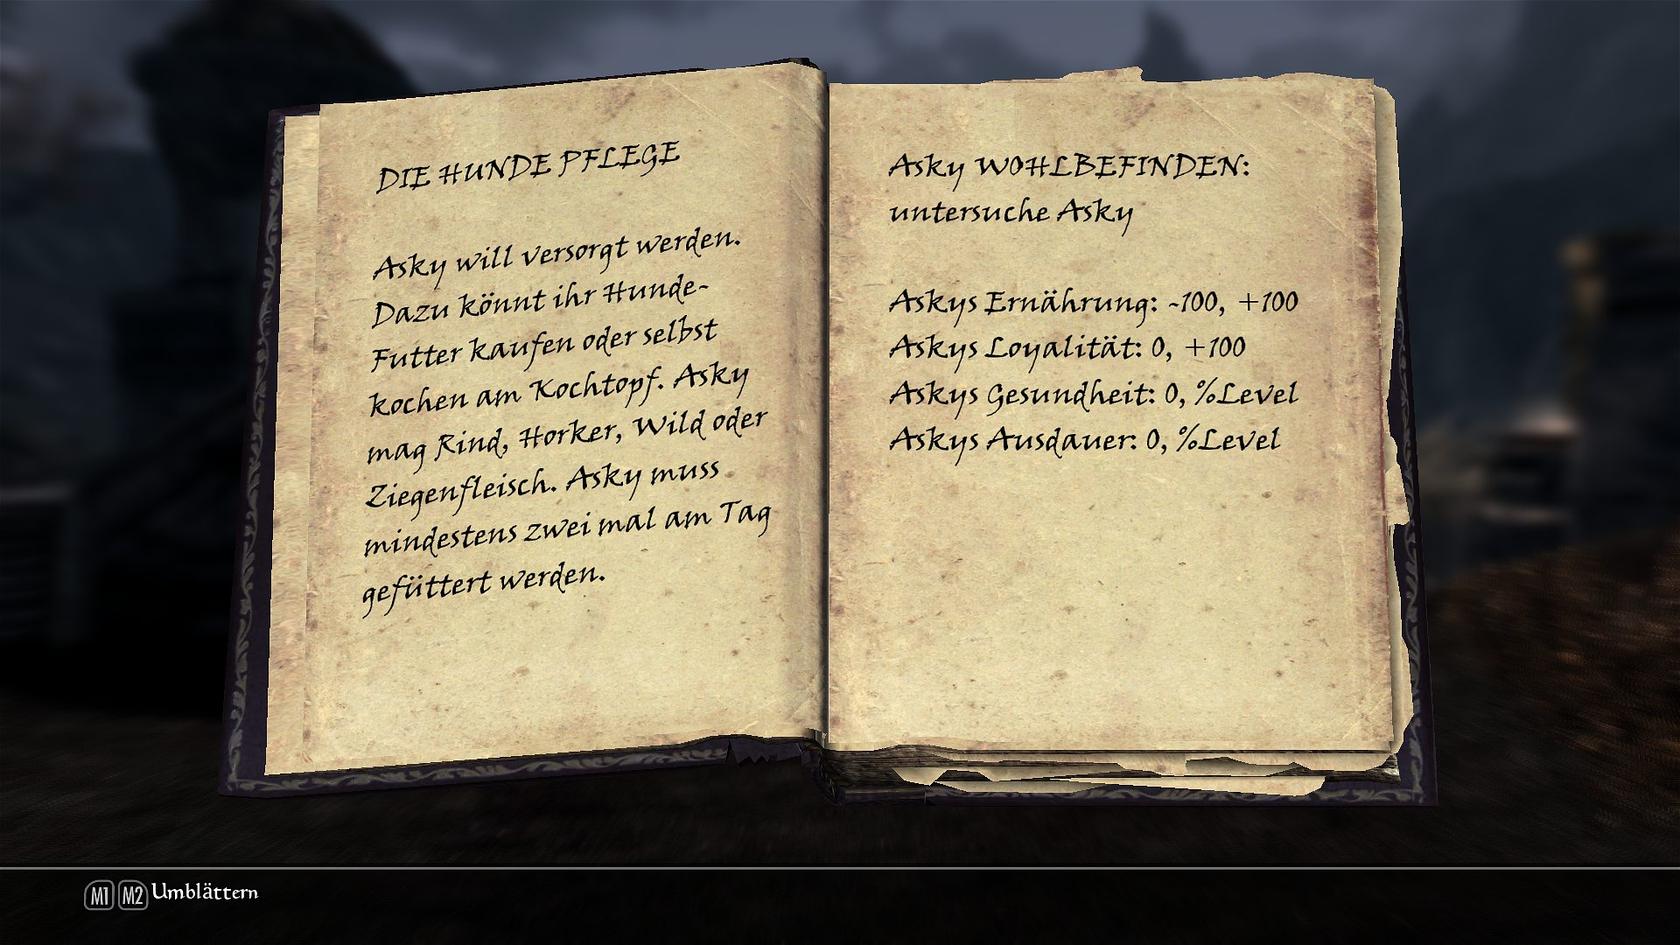 DIE HUNDE PFLEGE
Asky will versorgt werden.
Dazu könnt ihr Hunde-
Futter kaufen oder selbst
kochen am Kochtopf. Asky
mag Rind, Horker, Wild oder
Ziegenfleisch. Asky muss
mindestens zwei mal am Tag
gefüttert werden.
Asky WOHLBEFINDEN:
untersuche Asky
Askys Ernährung: -100, +100
Askys Loyalität: 0, +100
Askys Gesundheit: 0, %Level
Askys Ausdauer: 0, %Level
M1 M2 Umblättern